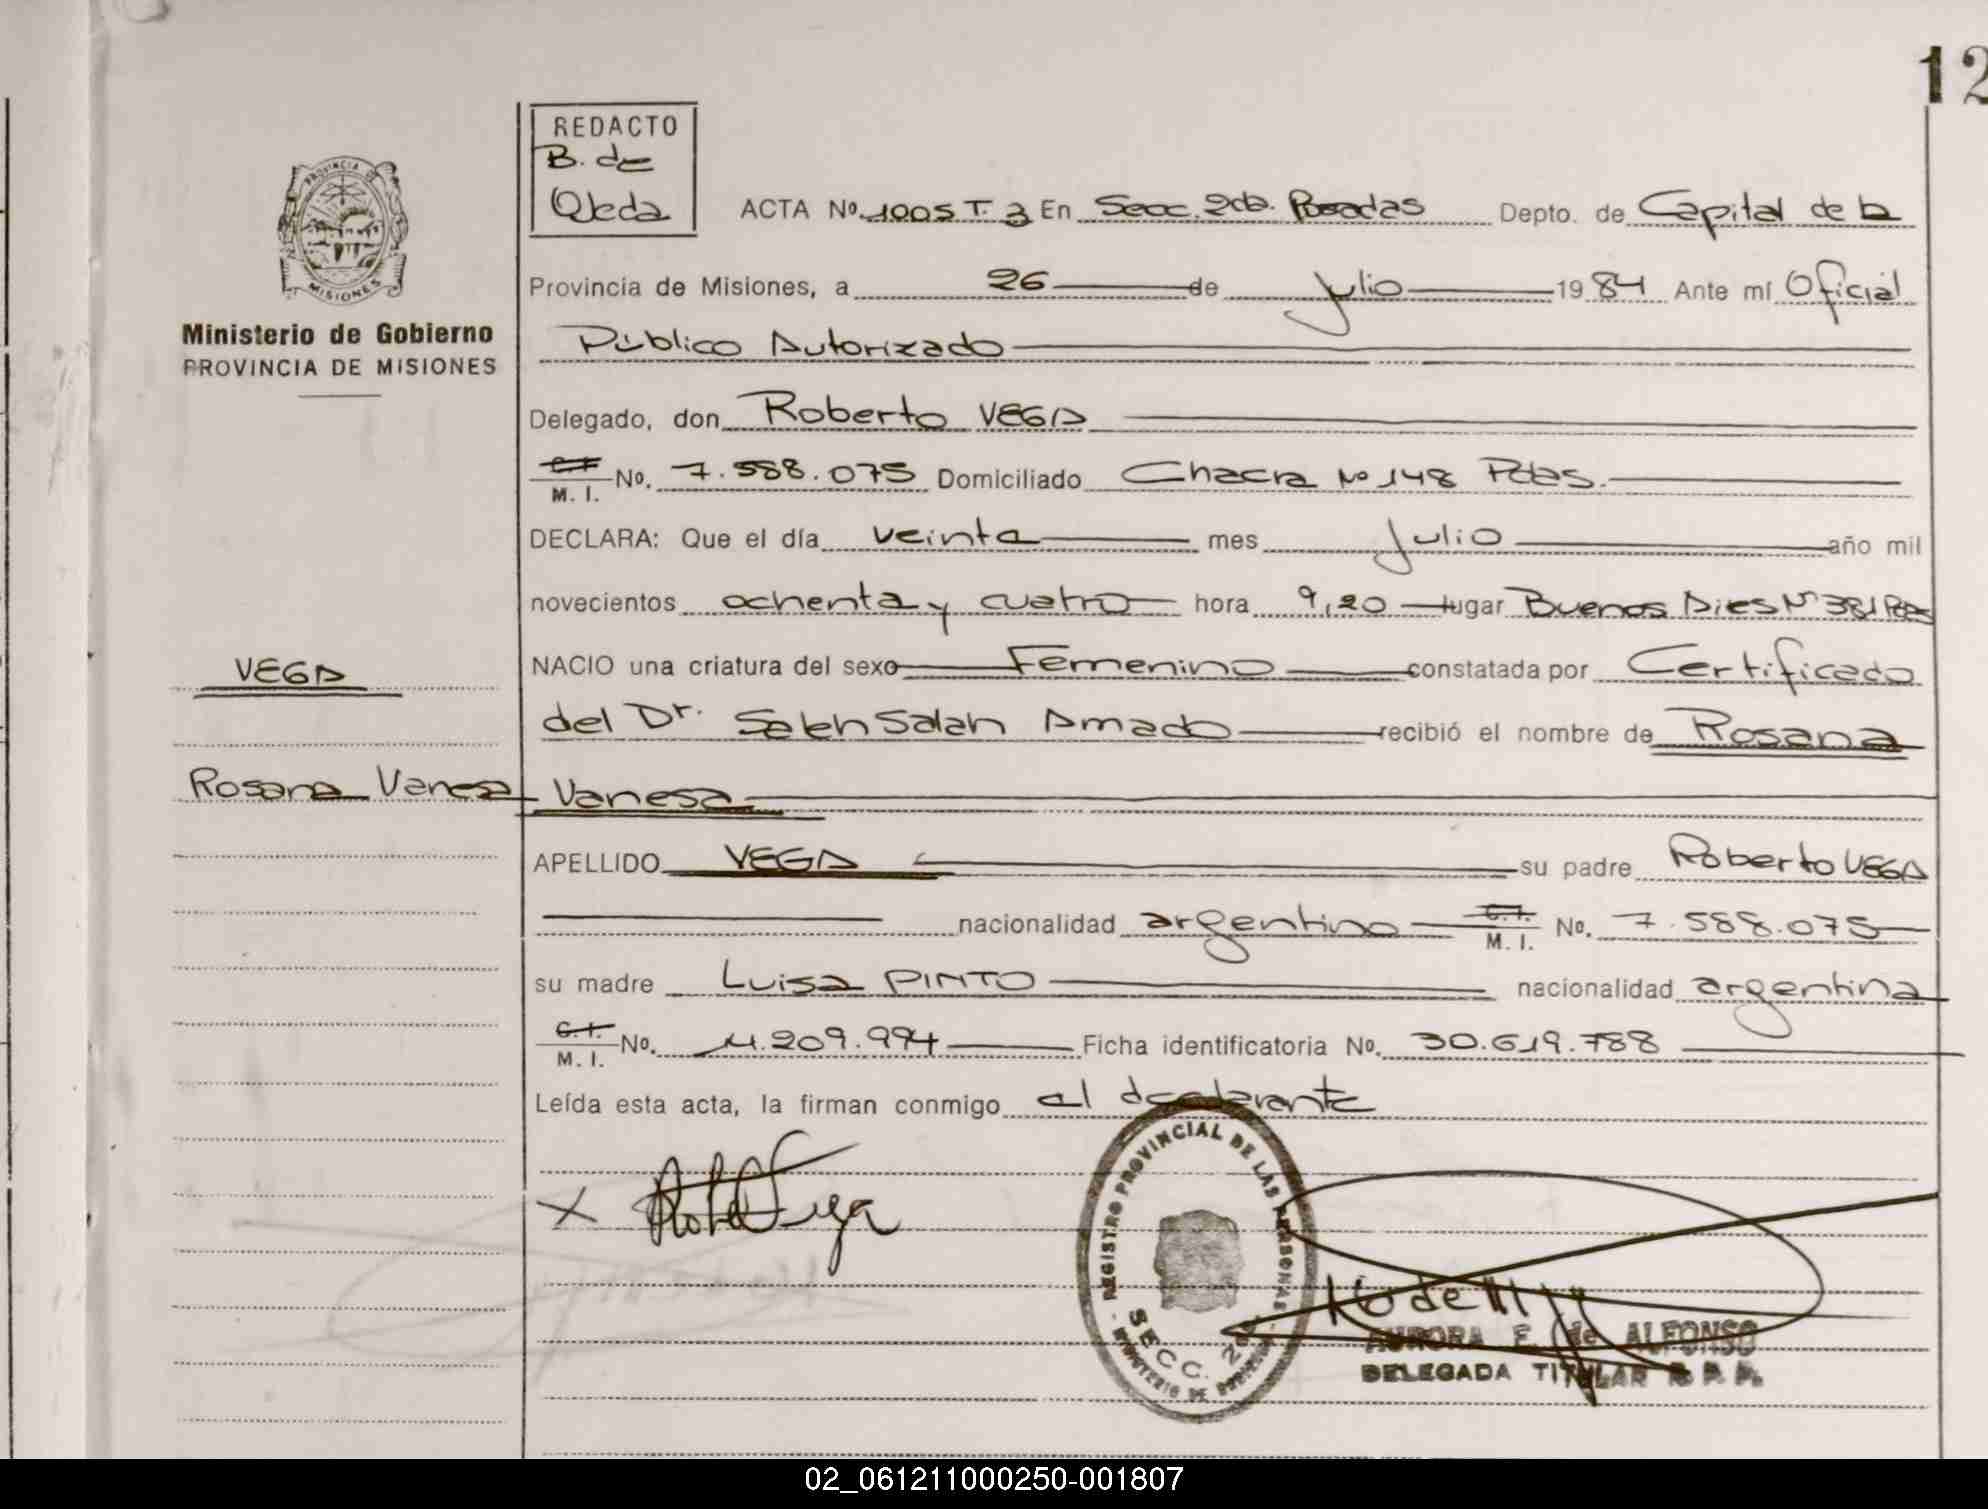 12
REDACTO
B. de
Ojeda
ACTA No. 1005 T. 3 En Secc. 2da. Posadas Depto. de Capital de la
PROVINCIA DE
MISIONES
Provincia de Misiones, a 26 de Julio 1984 Ante mí Oficial
Ministerio de Gobierno
PROVINCIA DE MISIONES
Público Autorizado
Delegado, don Roberto VEGA
C.I. M. I. No. 7.588.075 Domiciliado Chacra No 148 Pdas.
DECLARA: Que el día veinte mes Julio año mil
novecientos ochenta y cuatro hora 9,20 lugar Buenos Aires No 381 Pdas
VEGA
NACIO una criatura del sexo Femenino constatada por Certificado
del Dr. Saleh Salah Amado recibió el nombre de Rosana
Rosana Vanesa
Vanesa
APELLIDO VEGA su padre Roberto VEGA
nacionalidad argentino C.I. M. I. No. 7.588.075
su madre Luisa PINTO nacionalidad argentina
C.I. M. I. No. 11.209.994 Ficha identificatoria No. 30.619.788
Leída esta acta, la firman conmigo el declarante
X
REGISTRO PROVINCIAL DE LAS PERSONAS
SECC. 2da
MINISTERIO DE GOBIERNO
AURORA E. de ALFONSO
DELEGADA TITULAR R. P. P.
02_061211000250-001807